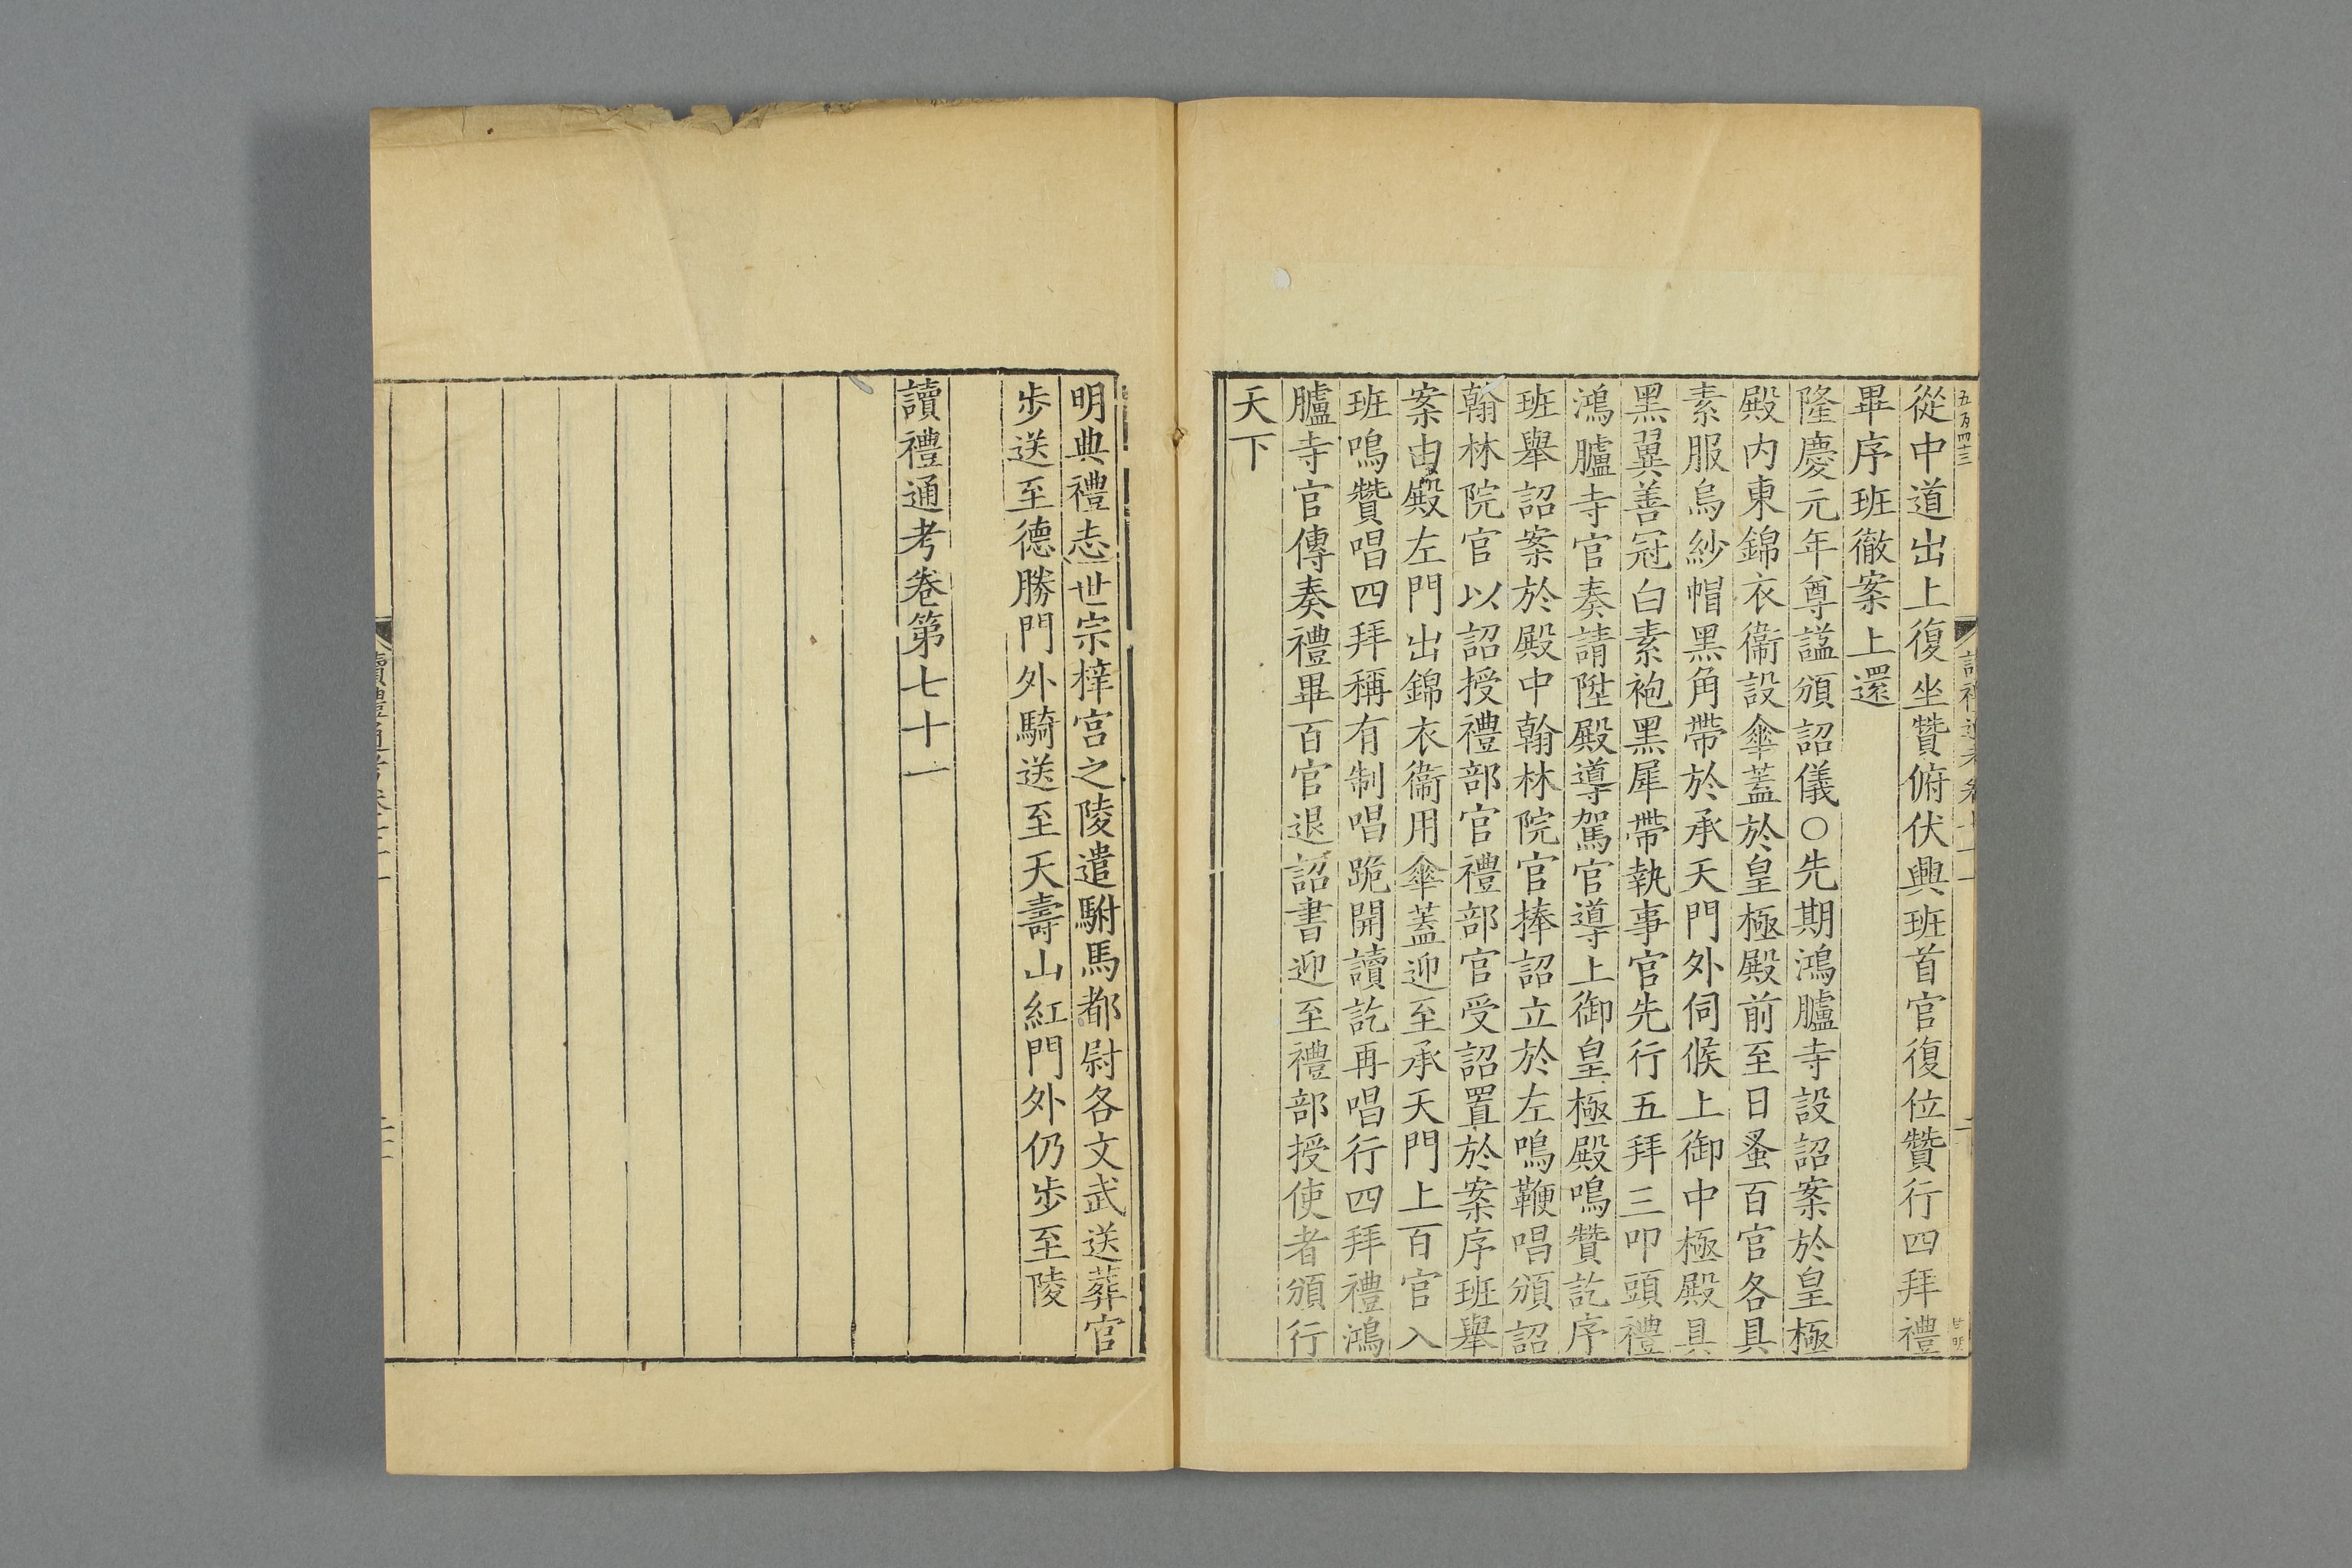 五百四十三
從中道出上復坐贊俯伏興班首官復位贊行四拜禮
畢序班徹案上還
隆慶元年尊諡頒詔儀○先期鴻臚寺設詔案於皇極
殿内東錦衣衞設傘蓋於皇極殿前至日蚤百官各具
素服烏紗帽黑角帶於承天門外伺候上御中極殿具
黑翼善冠白素袍黑犀帶執事官先行五拜三叩頭禮
鴻臚寺官奏請陞殿導駕官導上御皇極殿鳴贊訖序
班舉詔案於殿中翰林院官捧詔立於左鳴鞭唱頒詔
翰林院官以詔授禮部官禮部官受詔置於案序班舉
案由殿左門出錦衣衞用傘蓋迎至承天門上百官入
班鳴贊唱四拜稱有制唱跪開讀訖再唱行四拜禮鴻
臚寺官傳奏禮畢百官退詔書迎至禮部授使者頒行
天下
明典禮志世宗梓宮之陵遣駙馬都尉各文武送葬官
步送至德勝門外騎送至天壽山紅門外仍步至陵
讀禮通考卷第七十一
讀禮通考卷七十一